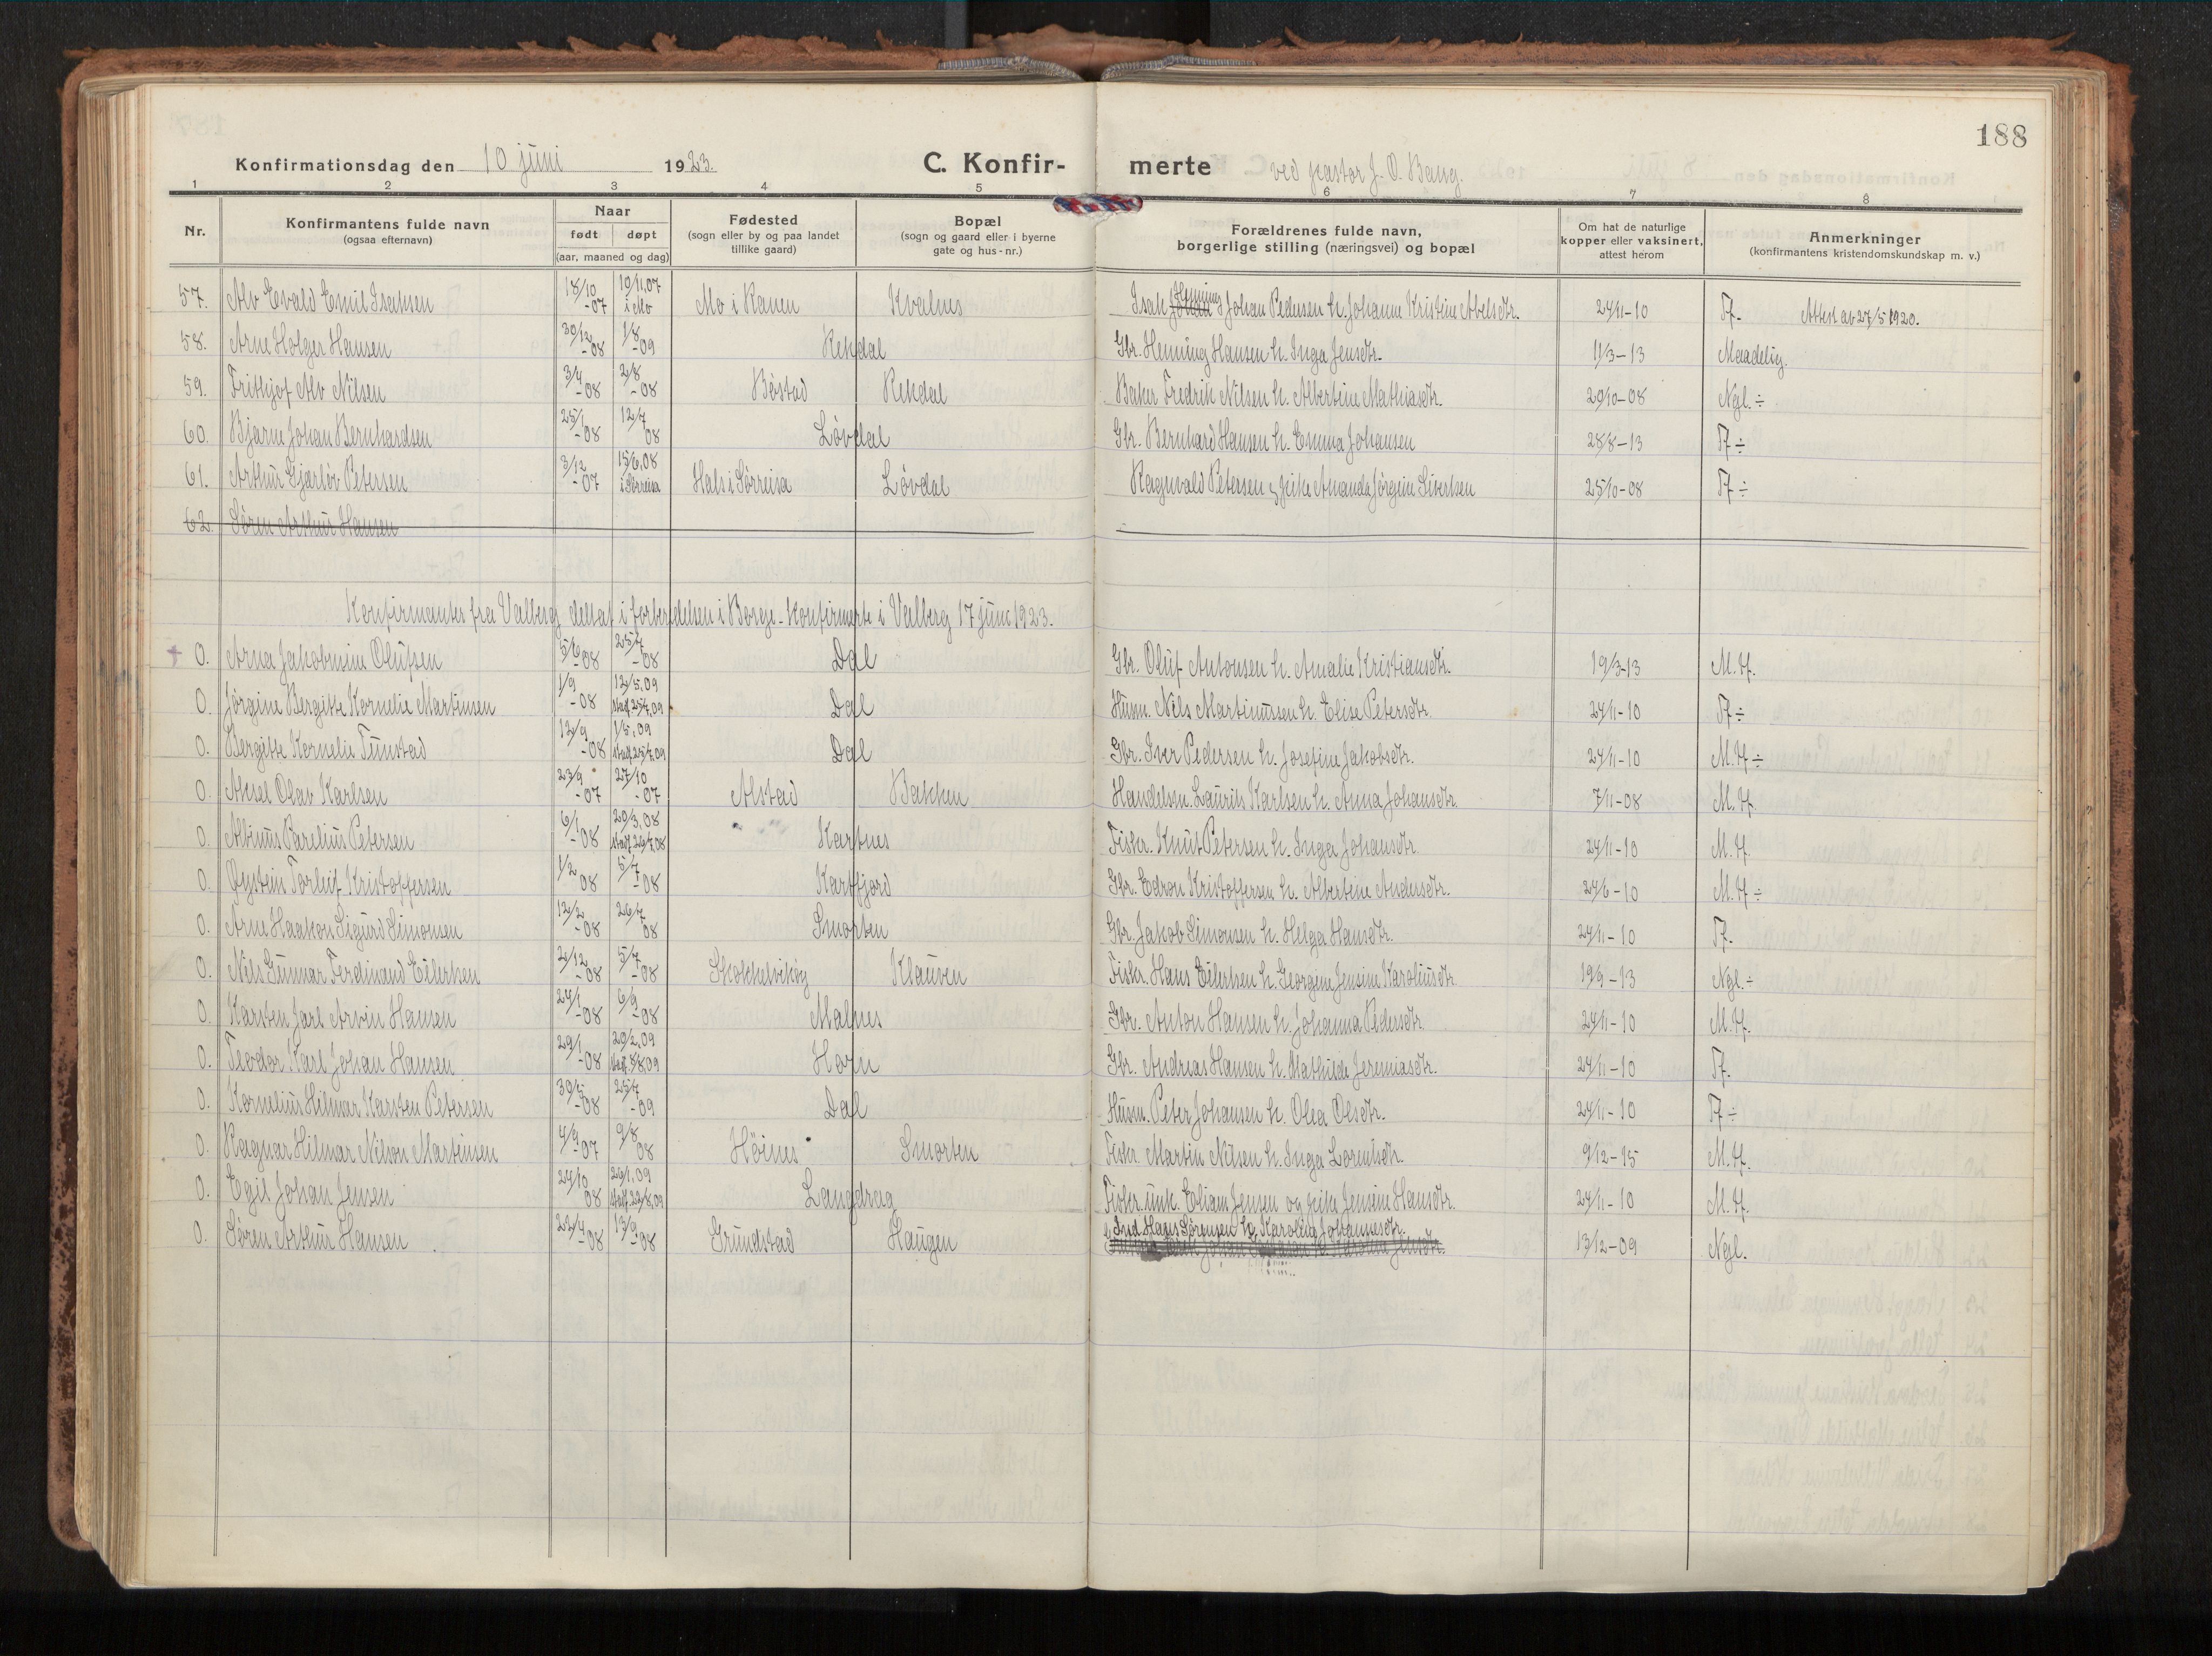 188
Konfirmationsdag den 10 juni 1923. C. Konfir- merte ved pastor J. O. Bang.
1 2 3 4 5 6 7 8
Nr. Konfirmantens fulde navn (ogsaa efternavn) Naar født døpt (aar, maaned og dag) Fødested (sogn eller by og paa landet tillike gaard) Bopæl (sogn og gaard eller i byerne gate og hus-nr.) Forældrenes fulde navn, borgerlige stilling (næringsvei) og bopæl Om hat de naturlige kopper eller vaksinert, attest herom Anmerkninger (konfirmantens kristendomskundskap m. v.)
57. Alv Evald Emil Isaksen 18/10-07 10/11,07 i Mo Mo i Ranen Kvalnes Isak Henning Johan Pedersen h. Johanne Kristine Abelsdtr. 24/11-10 T. Attest av 27/5 1920.
58. Arne Holger Hansen 30/12-08 1/8-09 Rekdal Gbr. Henning Hansen h. Inga Jensdtr. 11/3-13 Maadelig.
59. Frithjof Alv Nilsen 3/4-08 2/8-08 Bøstad Rekdal Baker Fredrik Nilsen h. Albertine Mathiasdtr. 29/10-08 Ngl.÷
60. Bjarne Johan Bernhardsen 25/1-08 12/7 08 Løvdal Gbr. Bernhard Hansen h. Emma Johansen 28/8-13 T÷
61. Arthur Gjærløv Petersen 3/12-07 15/6,08 i Sørreisa Hals i Sørreisa Løvdal Ragnvald Petersen og pike Amanda Jørgine Sivertsen 25/10-08 T÷
62. Søren Arthur Hansen
Konfirmanter fra Valberg deltat i forberedelsen i Borge - Konfirmerte i Valberg 17 juni 1923.
+ 0. Arna Jakobmine Olufsen 5/6-08 25/7-08 Dal Gbr. Oluf Antonsen h. Amalie Kristiansdtr. 19/3-13 M.T.
0. Jørgine Bergitte Kornelie Martinsen 1/9-08 12/5,09 stadf. 25/7,09 Dal Husm. Nils Martinussen h. Elise Petersdtr. 24/11-10 T÷
0. Bergitte Kornelie Tunstad 12/9-08 1/5,09 stadf. 25/7,09 Dal Gbr. Iver Pedersen h. Josefine Jakobsdtr. 24/11-10 M.T÷
0. Aksel Olav Karlsen 23/9-07 27/10-07 Alstad Bakken Handelsm. Laurits Karlsen h. Anna Johansdtr. 7/11-08 M.T.
0. Albinus Parelius Petersen 6/1-08 29/3,08 stadf. 26/7,08 Kartnes Fisker. Knut Petersen h. Inga Johansdtr. 24/11-10 M.T.
0. Øystein Torleif Kristoffersen 1/2 08 5/7-08 Kartfjord Gbr. Edron Kristoffersen h. Albertine Andersdtr. 24/6-10 M.T÷
0. Arne Haakon Sigurd Simonsen 12/2-08 26/7 08 Smorten Gbr. Jakob Simonsen h. Helga Hansdtr. 24/11-10 T.
0. Nils Gunnar Ferdinand Eilertsen 2/12-08 5/7-08 Skokkelvikøy Klauven Fisker. Hans Eilertsen h. Georgine Jensine Karoliusdtr. 19/9-13 Ngl.÷
0. Karsten Jarl Arvin Hansen 24/1-08 6/9-08 Malnes Gbr. Anton Hansen h. Johanna Pedersdtr. 24/11-10 M.T.
0. Teodor Karl Johan Hansen 29/1-08 20/2,09 stadf. 8/8,09 Horn Gbr. Andreas Hansen h. Mathilde Jeremiasdtr. 24/11-10 T.
0. Kornelius Hilmar Karsten Petersen -08 25/7-09 Dal Husm. Peter Johansen h. Olea Olsdtr. 24/11-10 T÷
0. Ragnar Hilmar Nilson Martinsen 4/9-07 9/8 08 Høines Smorten Fisker Martin Nilsen h. Inga Lorentsdtr. 9/12-15 M.T.
0. Egil Johan Jensen 24/10 08 26/1,09 stadf. 22/8,09 Langdrag Fisker. unk. Eliam Jensen og pike Jensine Hansdtr. 24/11-10 M.T.
0. Søren Arthur Hansen 22/4-08 13/9-08 Grundstad Haugen Ind. Hans Sørensen h. Karolina Johannesdtr. 13/12-09 Ngl.